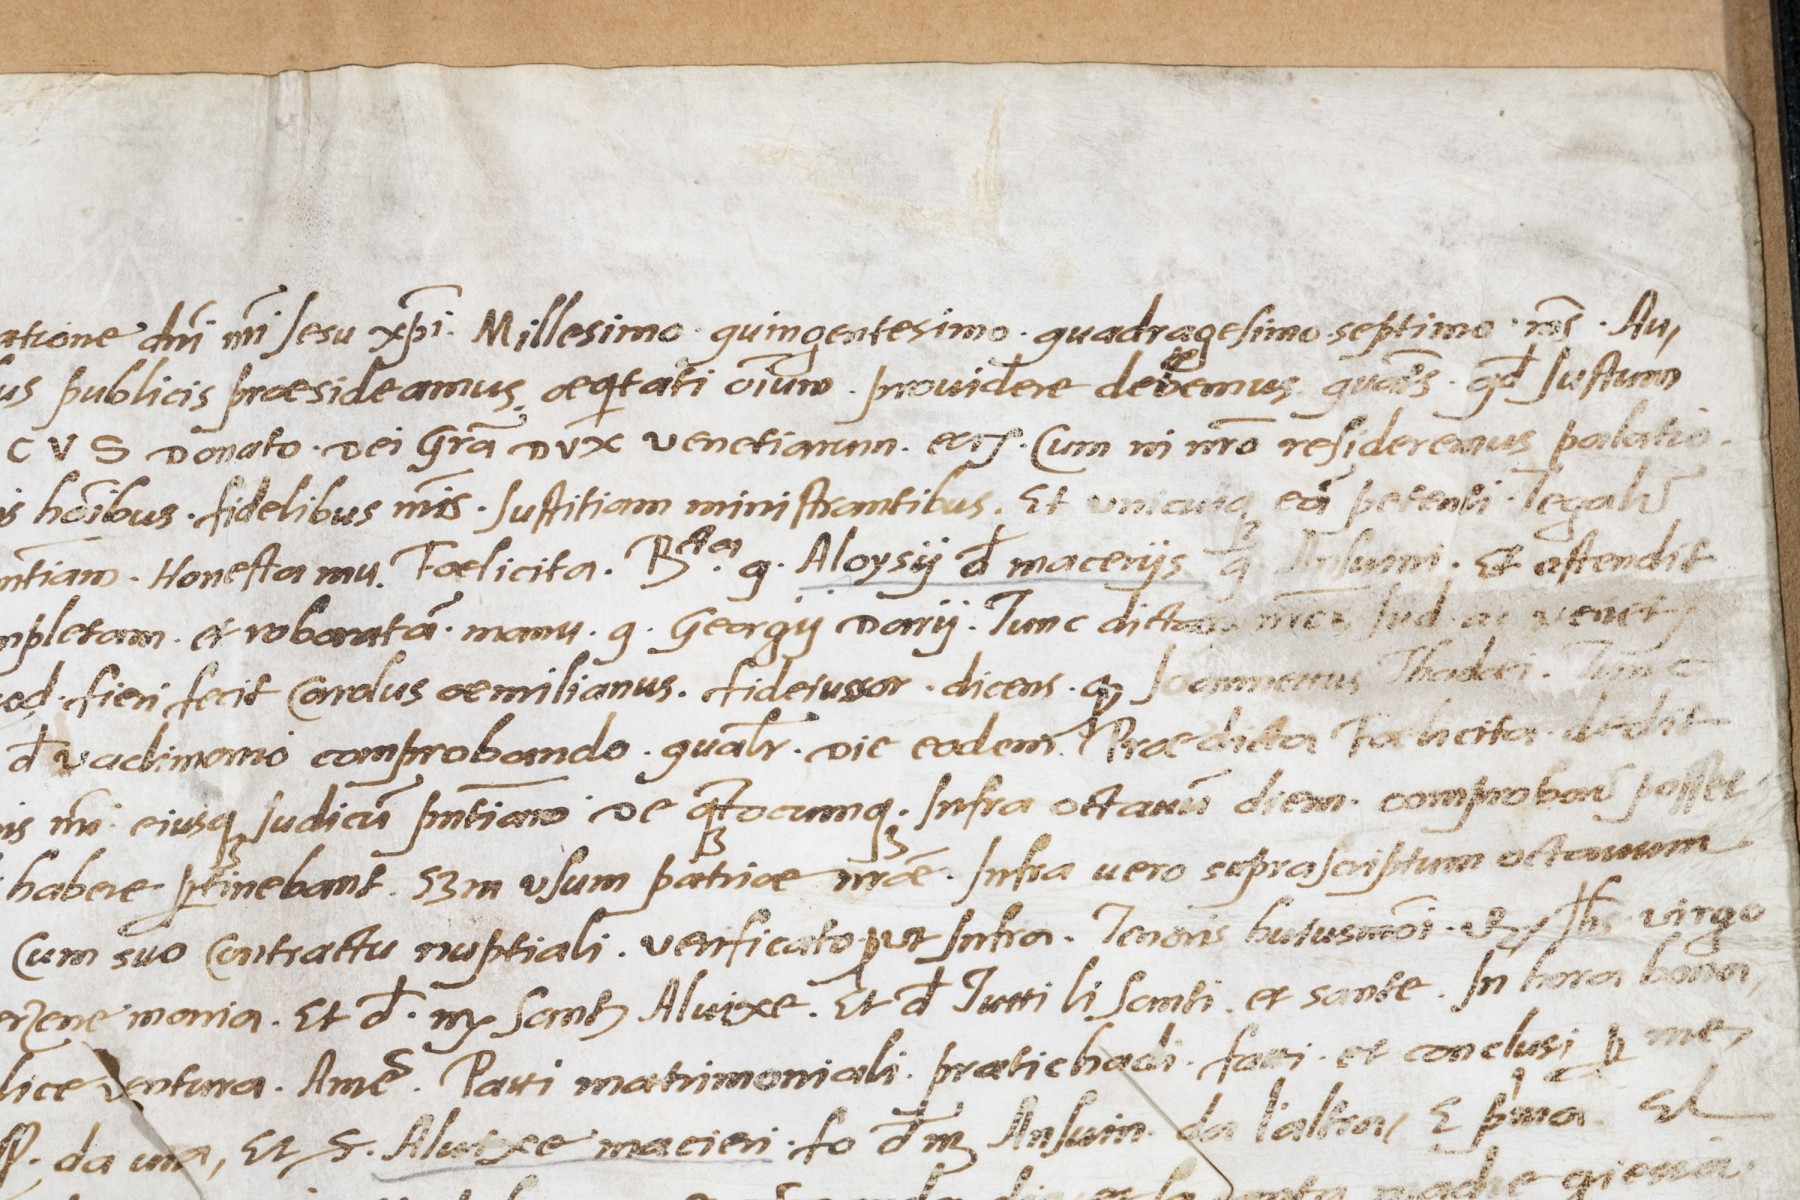 atione dnĩ nrĩ Jesu xpĩ. Millesimo. quingentesimo. quadragesimo septimo. mẽs. Au,
us publicis præsideamus, æqtati oĩum. prouidere debemus. qd̃ Justum
CVS Donato. Dei Grã DVX venetiarum. Cum in nrõ resideremus palatio.
is hoĩbus. fidelibus nrĩs. Justitiam ministrantibus. Et unicuiq eã petenti. legalr̃
ntiam. Honesta mu. Foelicita. Rcta. q. Aloysij d̃ macerijs q Ansuini. Et ostendit
mpletam. et roboratã. manu. q. Georgij Darij. Tunc dicta
od. fieri fecit Carolus aemilianus. fideiussor. dicens. q Joannenus Thadei. Tunc
d̃ vadimonio comprobando. qualr̃. Die eodem. Prædicta Foelicita. dedit
is nrĩ. eiusq Judicũ pñtiam De qtocumq. Infra octauũ diem. comprobarẽ posset
habere ptinebant. Szm vsum patriæ nrãe. Infra uero suprascriptum octauum
Cum suo Contractu nuptiali. verificato. put Infra. Tenoris huiusmõi. Jhs. virgo
erzene maria. Et d̃. mr Santo Aluixe. Et d̃ Tutti li santi. et sante. In hora bona,
lice ventura. Amẽ. Patti matrimoniali. pratichadi. fati. et conclusi p me,
da una, Et S. Aluixe macieri. fo d̃ m Ansuin. da l'altra, E pma. El
la santa madre giexia.